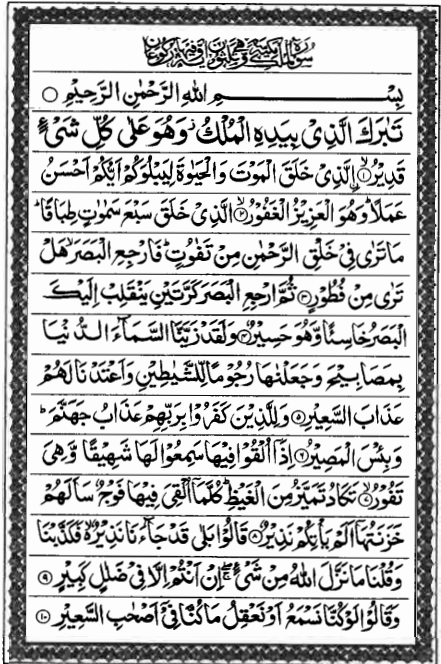 سورة الملك مكية وهي ثلثون اية وفيها ركوعان
بِسْمِ اللهِ الرَّحْمٰنِ الرَّحِيْمِ ○
تَبٰرَكَ الَّذِيْ بِيَدِهِ الْمُلْكُ ز وَهُوَ عَلٰى كُلِّ شَيْءٍ
قَدِيْرُ ۙ﴿۱﴾ الَّذِيْ خَلَقَ الْمَوْتَ وَالْحَيٰوةَ لِيَبْلُوَكُمْ اَيُّكُمْ اَحْسَنُ
عَمَلًا ؕ وَهُوَ الْعَزِيْزُ الْغَفُوْرُ ۙ﴿۲﴾ الَّذِيْ خَلَقَ سَبْعَ سَمٰوٰتٍ طِبَاقًا ؕ
مَا تَرٰى فِيْ خَلْقِ الرَّحْمٰنِ مِنْ تَفٰوُتٍ ؕ فَارْجِعِ الْبَصَرَ ۙ هَلْ
تَرٰى مِنْ فُطُوْرٍ ﴿۳﴾ ثُمَّ ارْجِعِ الْبَصَرَ كَرَّتَيْنِ يَنْقَلِبْ اِلَيْكَ
الْبَصَرُ خَاسِئًا وَّهُوَ حَسِيْرٌ ﴿۴﴾ وَلَقَدْ زَيَّنَّا السَّمَآءَ الدُّنْيَا
بِمَصَابِيْحَ وَجَعَلْنٰهَا رُجُوْمًا لِّلشَّيٰطِيْنِ وَاَعْتَدْنَا لَهُمْ
عَذَابَ السَّعِيْرِ ﴿۵﴾ وَلِلَّذِيْنَ كَفَرُوْا بِرَبِّهِمْ عَذَابُ جَهَنَّمَ ؕ
وَبِئْسَ الْمَصِيْرُ ﴿۶﴾ اِذَآ اُلْقُوْا فِيْهَا سَمِعُوْا لَهَا شَهِيْقًا وَّهِيَ
تَفُوْرُ ۙ﴿۷﴾ تَكَادُ تَمَيَّزُ مِنَ الْغَيْظِ ؕ كُلَّمَآ اُلْقِيَ فِيْهَا فَوْجٌ سَاَلَهُمْ
خَزَنَتُهَآ اَلَمْ يَاْتِكُمْ نَذِيْرٌ ﴿۸﴾ قَالُوْا بَلٰى قَدْ جَآءَنَا نَذِيْرٌ ۙ۬ فَكَذَّبْنَا
وَقُلْنَا مَا نَزَّلَ اللهُ مِنْ شَيْءٍ ۚۖ اِنْ اَنْتُمْ اِلَّا فِيْ ضَلٰلٍ كَبِيْرٍ ﴿۹﴾
وَقَالُوْا لَوْ كُنَّا نَسْمَعُ اَوْ نَعْقِلُ مَا كُنَّا فِيْٓ اَصْحٰبِ السَّعِيْرِ ﴿۱۰﴾